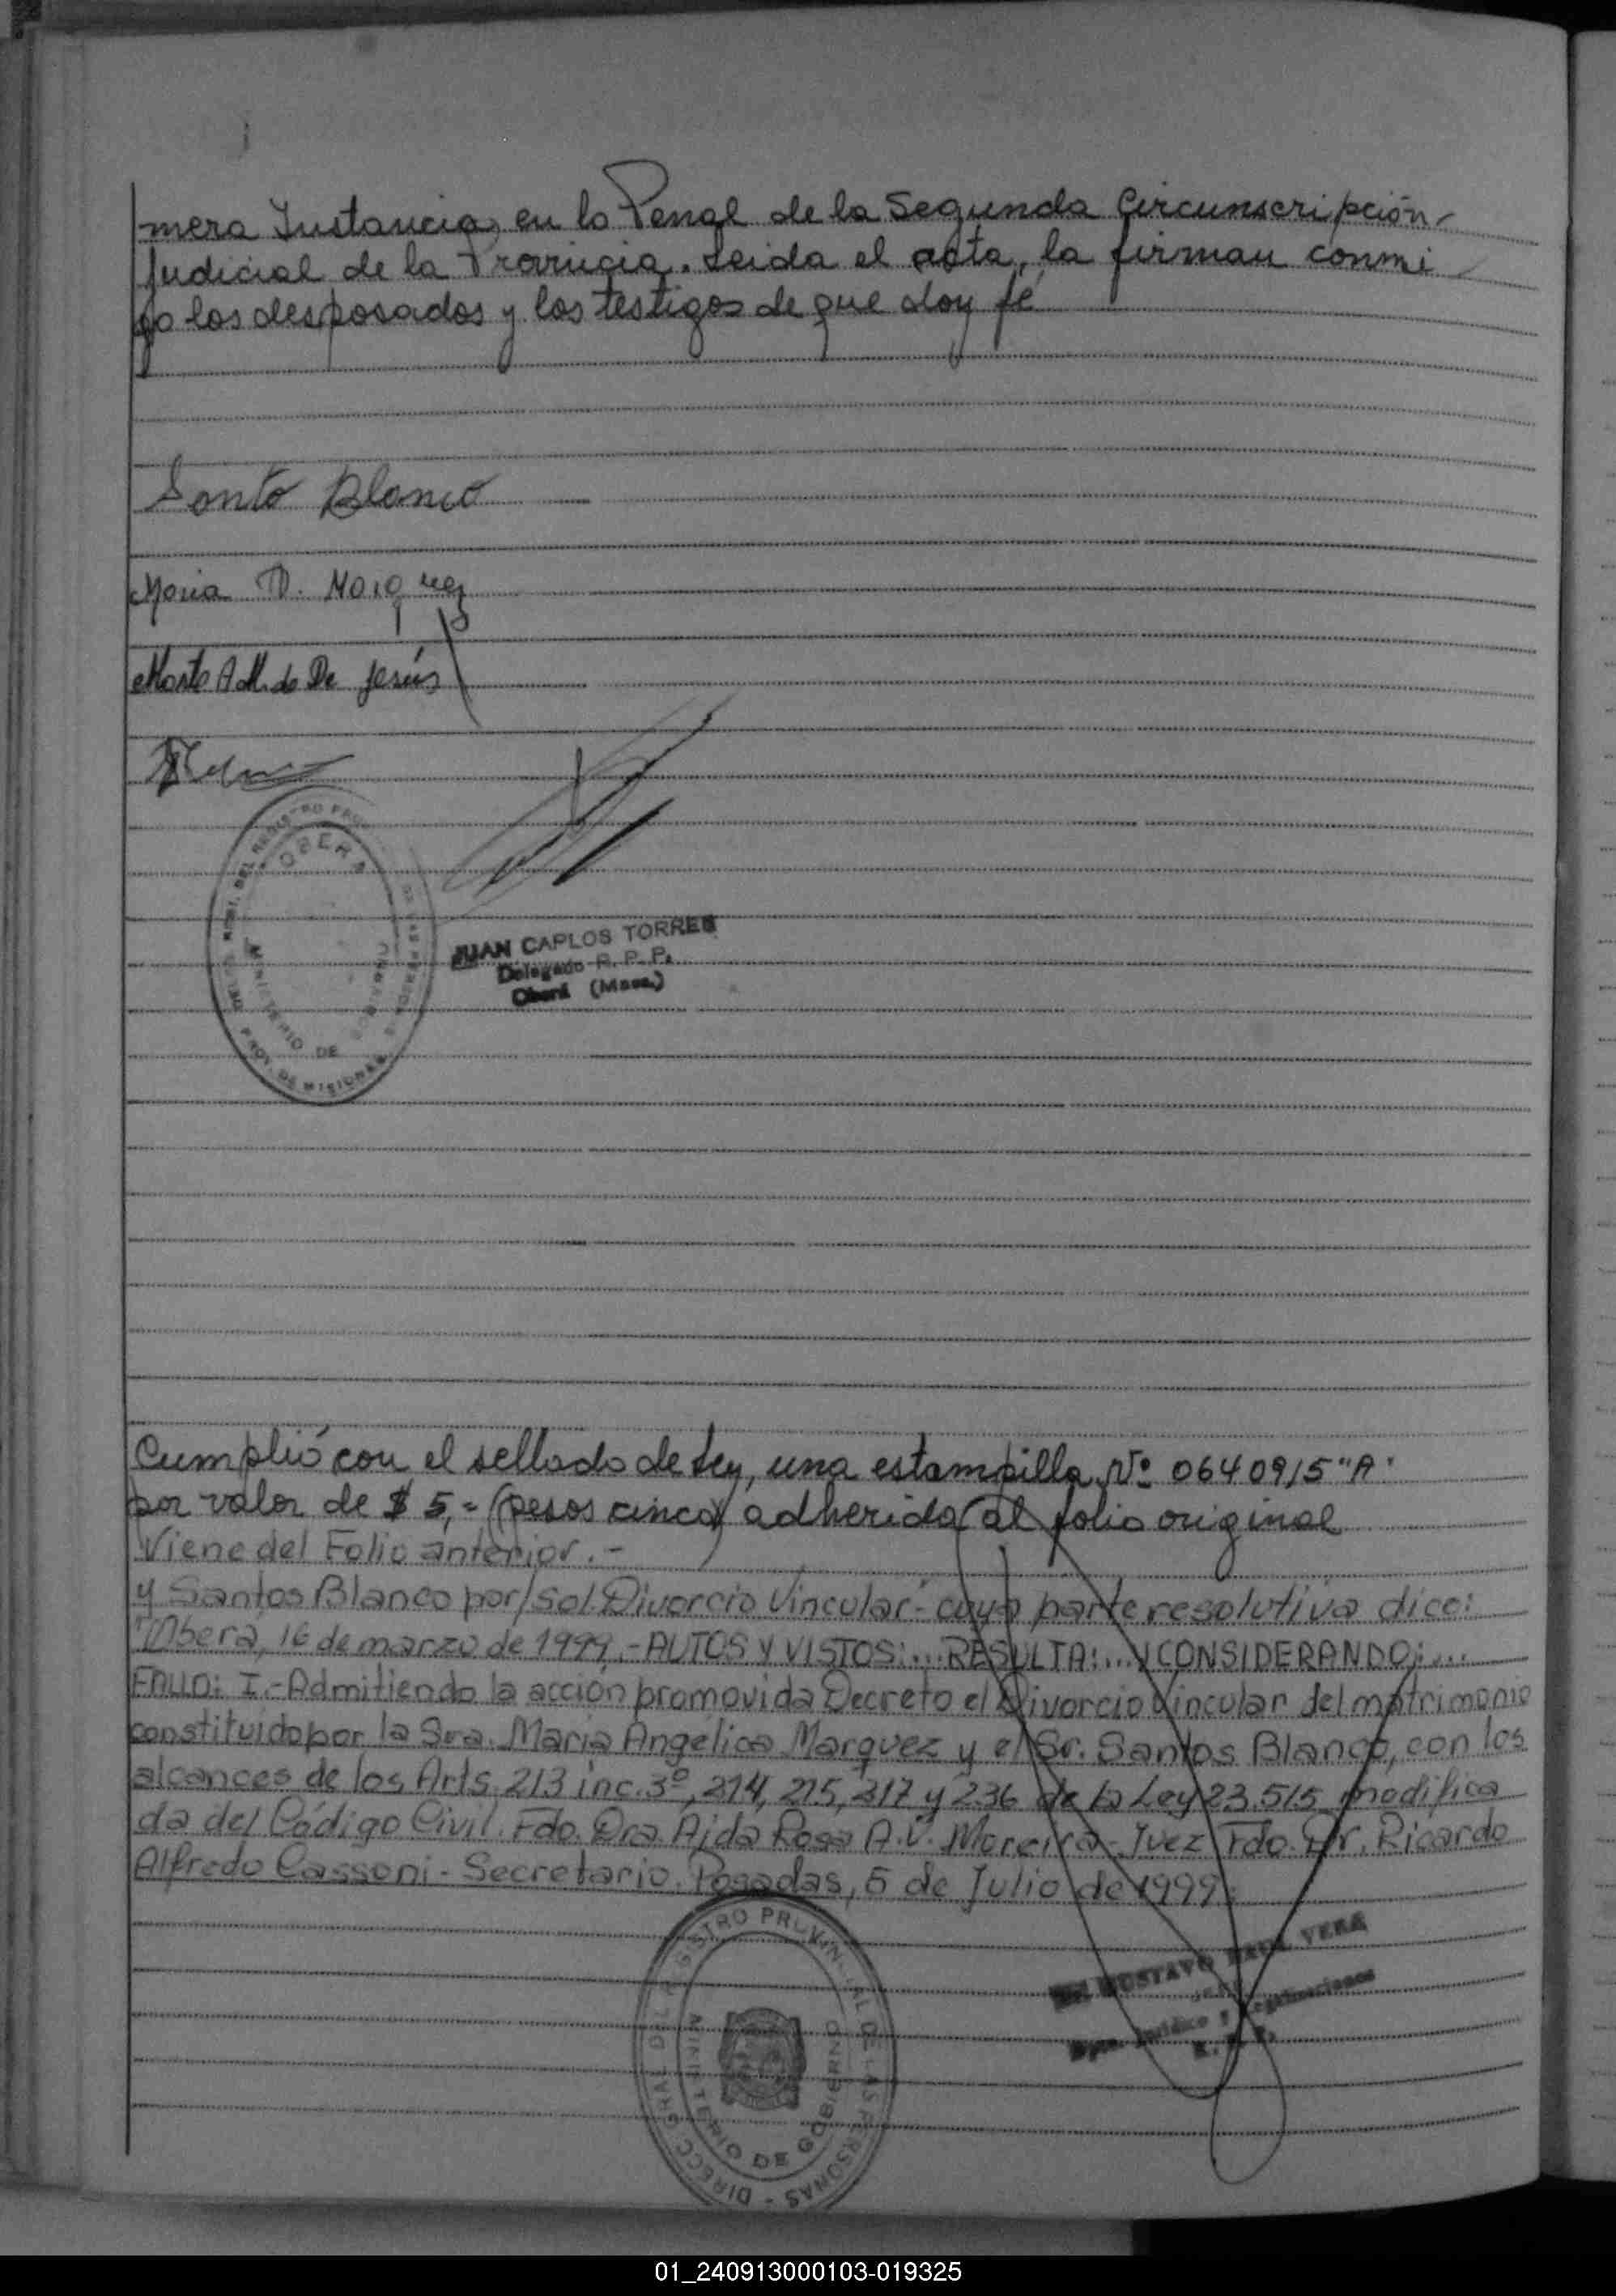 mera Instancia, en lo Penal de la Segunda Circunscripción
Judicial de la Provincia. Leida el acta, la firman conmi
go los desposados y los testigos de que doy fé
Santo Blanco
Maria
Marta A. M. de De Jesús
OBERA
MINISTERIO DE GOBIERNO
PROV. DE MISIONES
JUAN CARLOS TORRES
Delegado R. P. P.
Oberá (Mnes.)
Cumplió con el sellado de Ley, una estampilla Nº 0640915 "A"
por valor de $ 5,= (pesos cinco) adherida al folio original
Viene del Folio anterior.-
y Santos Blanco por/sol. Divorcio Vincular- cuya parte resolutiva dice:
"Oberá, 16 de marzo de 1999.- AUTOS Y VISTOS:... RESULTA:... Y CONSIDERANDO:...
FALLO: I.- Admitiendo la acción promovida Decreto el Divorcio Vincular del matrimonio
constituido por la Sra. Maria Angélica Marquez y el Sr. Santos Blanco, con los
alcances de los Arts. 213 inc. 3º, 214, 215, 217 y 236 de la Ley 23.515 modifica
da del Código Civil. Fdo. Dra. Aida Rosa A.V. Moreira - Juez Fdo. Dr. Ricardo
Alfredo Cassoni - Secretario. Posadas, 5 de Julio de 1999.
DIRECC GRAL DEL REGISTRO PROVINCIAL DE LAS PERSONAS
MINISTERIO DE GOBIERNO
GUSTAVO RAUL VERA
01_240913000103-019325